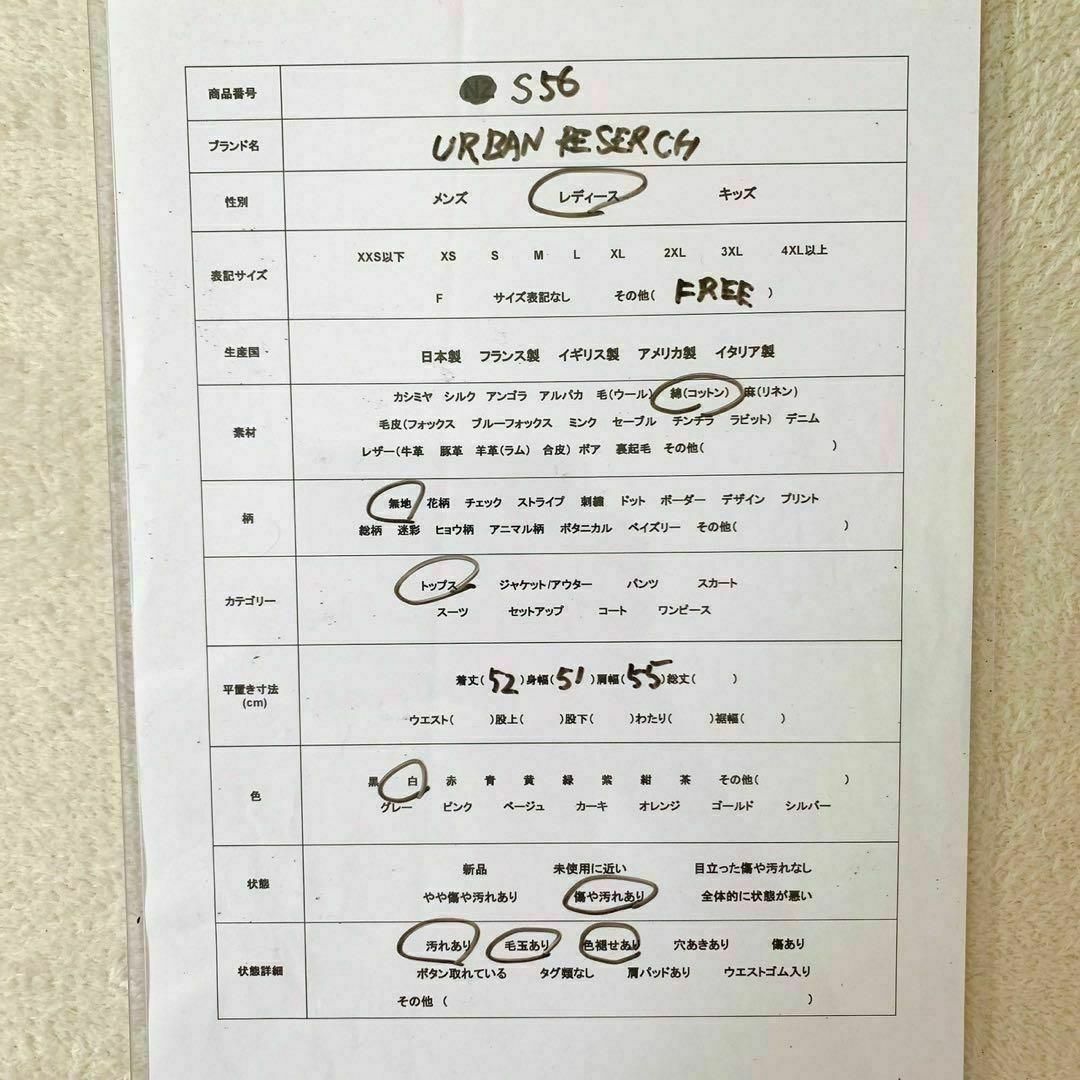 商品番号 S56
ブランド名 URBAN RESERCH
性別 メンズ レディース キッズ
XXS以下 XS S M L XL 2XL 3XL 4XL以上
表記サイズ
F サイズ表記なし その他( FREE )
生産国 日本製 フランス製 イギリス製 アメリカ製 イタリア製
カシミヤ シルク アンゴラ アルパカ 毛(ウール) 綿(コットン) 麻(リネン)
素材 毛皮(フォックス ブルーフォックス ミンク セーブル チンチラ ラビット) デニム
レザー(牛革 豚革 羊革(ラム) 合皮) ボア 裏起毛 その他( )
柄 無地 花柄 チェック ストライプ 刺繍 ドット ボーダー デザイン プリント
総柄 迷彩 ヒョウ柄 アニマル柄 ボタニカル ペイズリー その他( )
カテゴリー トップス ジャケット/アウター パンツ スカート
スーツ セットアップ コート ワンピース
平置き寸法 着丈(52)身幅(51)肩幅(55)総丈( )
(cm) ウエスト( )股上( )股下( )わたり( )裾幅( )
色 黒 白 赤 青 黄 緑 紫 紺 茶 その他( )
グレー ピンク ベージュ カーキ オレンジ ゴールド シルバー
状態 新品 未使用に近い 目立った傷や汚れなし
やや傷や汚れあり 傷や汚れあり 全体的に状態が悪い
汚れあり 毛玉あり 色褪せあり 穴あきあり 傷あり
状態詳細 ボタン取れている タグ類なし 肩パッドあり ウエストゴム入り
その他 ( )